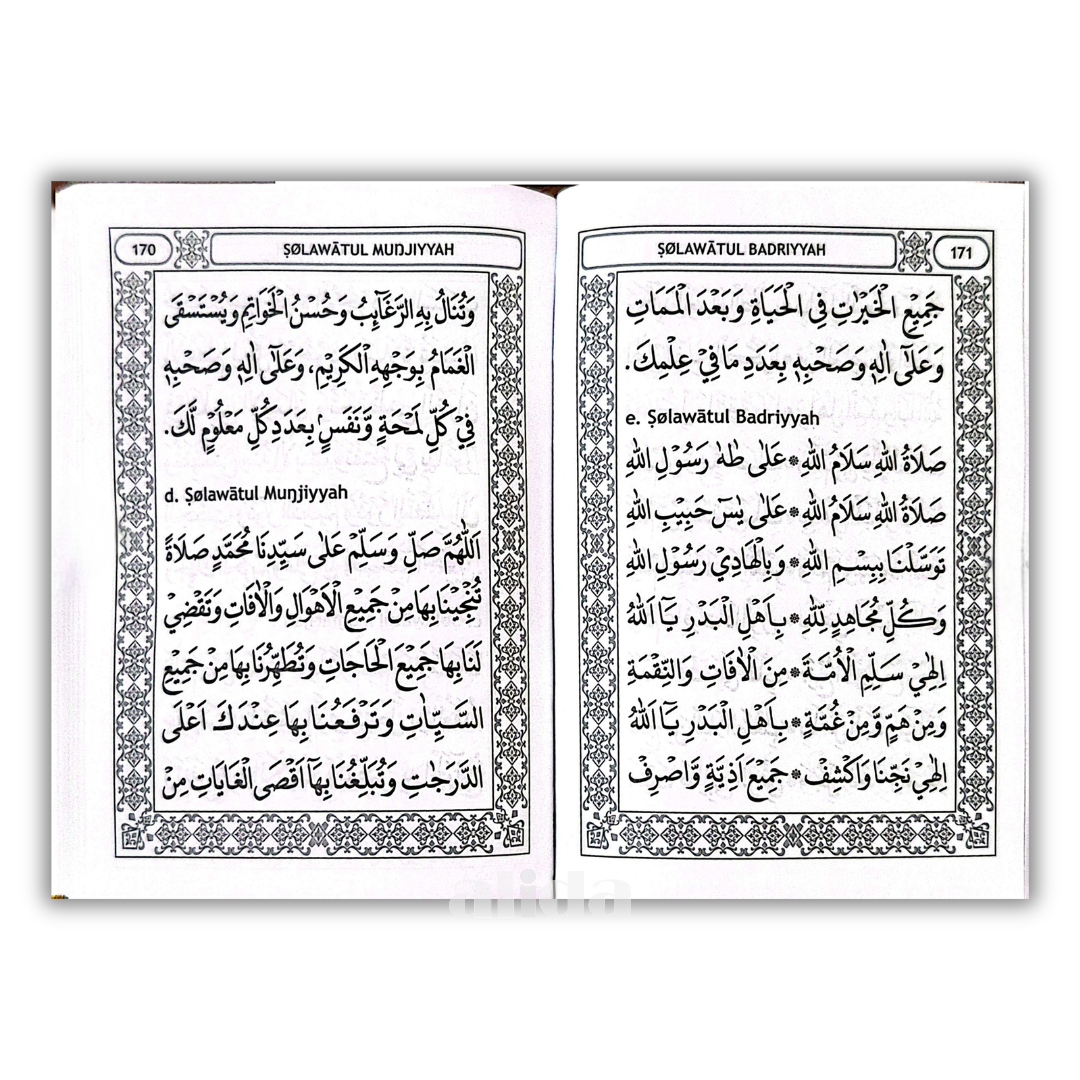 170
ṢØLAWĀTUL MUŊJIYYAH
وَتُنَالُ بِهِ الرَّغَآىِٕبُ وَحُسْنُ الْخَوَاتِمِ وَيُسْتَسْقَى
الْغَمَامُ بِوَجْهِهِ الْكَرِيْمِ، وَعَلٰٓى اٰلِهٖ وَصَحْبِهٖ
فِيْ كُلِّ لَمْحَةٍ وَّنَفَسٍ بِعَدَدِ كُلِّ مَعْلُوْمٍ لَّكَ.
d. Ṣølawātul Muŋjiyyah
اَللّٰهُمَّ صَلِّ وَسَلِّمْ عَلٰى سَيِّدِنَا مُحَمَّدٍ صَلَاةً
تُنْجِيْنَا بِهَا مِنْ جَمِيْعِ الْاَهْوَالِ وَالْاٰفَاتِ وَتَقْضِيْ
لَنَا بِهَا جَمِيْعَ الْحَاجَاتِ وَتُطَهِّرُنَا بِهَا مِنْ جَمِيْعِ
السَّيِّاٰتِ وَتَرْفَعُنَا بِهَا عِنْدَكَ اَعْلَى
الدَّرَجٰتِ وَتُبَلِّغُنَا بِهَآ اَقْصَى الْغَايَاتِ مِنْ
ṢØLAWĀTUL BADRIYYAH
171
جَمِيْعِ الْخَيْرٰتِ فِى الْحَيَاةِ وَبَعْدَ الْمَمَاتِ
وَعَلٰٓى اٰلِهٖ وَصَحْبِهٖ بِعَدَدِ مَا فِيْ عِلْمِكَ.
e. Ṣølawātul Badriyyah
صَلَاةُ اللهِ سَلَامُ اللهِ * عَلٰى طٰهٰ رَسُوْلِ اللهِ
صَلَاةُ اللهِ سَلَامُ اللهِ * عَلٰى يٰسٓ حَبِيْبِ اللهِ
تَوَسَّلْنَا بِبِسْمِ اللهِ * وَبِالْهَادِيْ رَسُوْلِ اللهِ
وَكُلِّ مُجَاهِدٍ لِلّٰهِ * بِاَهْلِ الْبَدْرِ يَآ اَللهُ
اِلٰهِيْ سَلِّمِ الْاُمَّةَ * مِنَ الْاٰفَاتِ وَالنِّقْمَةِ
وَمِنْ هَمٍّ وَّمِنْ غُمَّةٍ * بِاَهْلِ الْبَدْرِ يَآ اَللهُ
اِلٰهِيْ نَجِّنَا وَاكْشِفْ * جَمِيْعَ اَذِيَّةٍ وَّاصْرِفْ
alida